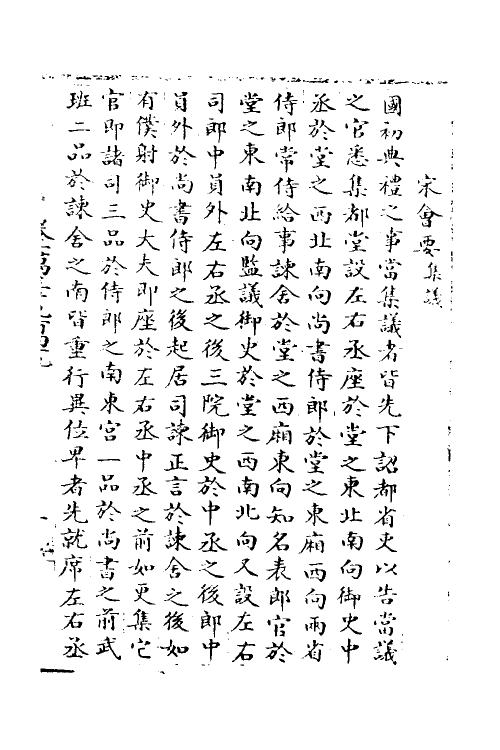 宋會要集議
國初典禮之事當集議者皆先下詔都省吏以告當議
之官悉集都堂設左右丞座於堂之東北南向御史中
丞於堂之西北南向尚書侍郎於堂之東廂西向兩省
侍郎常侍給事諫舍於堂之西廂東向知名表郎官於
堂之東南北向監議御史於堂之西南北向又設左右
司郎中員外左右丞之後三院御史於中丞之後郎中
員外於尚書侍郎之後起居司諫正言於諫舍之後如
有僕射御史大夫即座於左右丞中丞之前如更集它
官即諸司三品於侍郎之南東宮一品於尚書之前武
班二品於諫舍之南皆重行異位卑者先就席左右丞